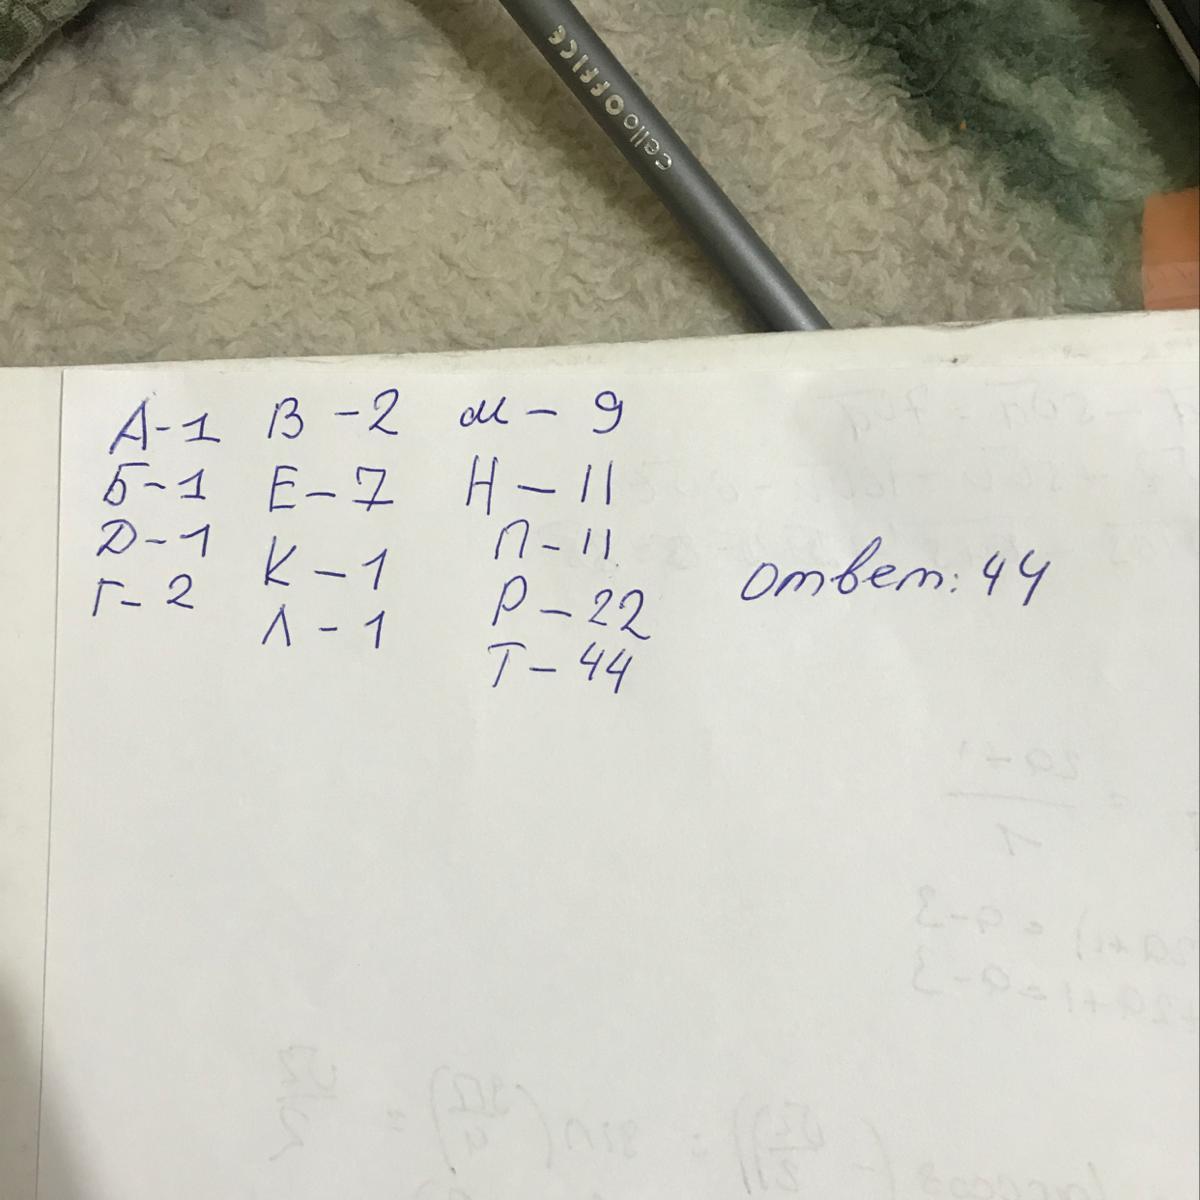 cello OFFICE
А-1
Б-1
Д-1
Г-2
В-2
Е-7
К-1
Л-1
м-9
Н-11
П-11
Р-22
Т-44
ответ: 44